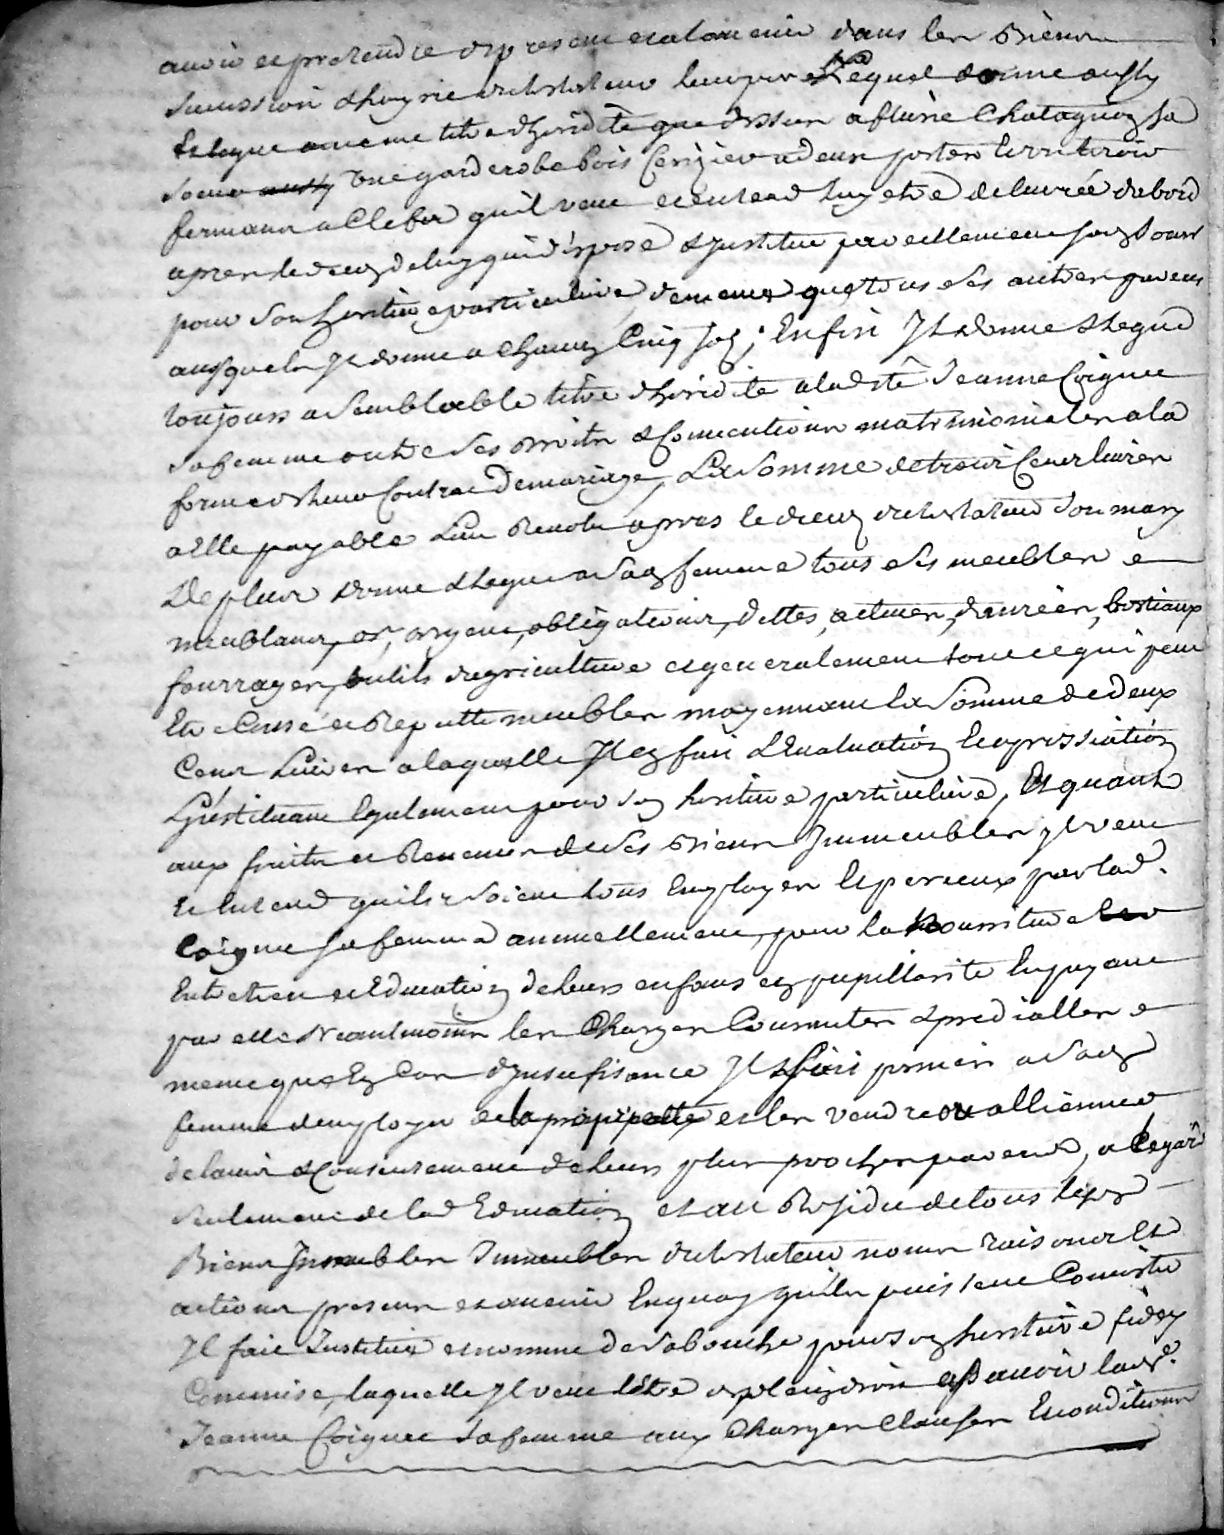 avoir et pretendre de present et alavenir dans les Biens
Succession & hoyrie du testateur leur pere Lequel donne aussy
& legue a meme titre dheridité que dessus a flurie Chatagnoz sa
soeur aussy une garderobe bois Cerizier a deux portes tirroir
fermans a Clefs quil veut et entend luy etre delivrée dabord
apres le deces deluy qui dispose & Institue pareillement
pour son heritiere particuliere, de meme que tous ses autres parens
auxquels Jl donne a Chacun Cinq sols; Enfin Jl donne & legue
toujours a semblable titre dheridité a ladte Jeanne Coignet
sa femme outre ses droits & Conventions matrimoniales a la
forme de leur Contrac de mariage, La somme de trois Cent livres
a Elle payable Lan Revolu apres le deces du testateur son mary
De plus donne & legue a sad femme tous ses meubles et
meublans, or, argent, obligations, dettes, actives, danrées, bestiaux
fourrages, outils dagriculture et generalement tout ce qui peut
Etre Censé et Reputté meubles moyennant la Somme de deux
Cent Livres a laquelle Jl en fait L'Evaluation & apressiation
L'Instituant Egalement pour son heritiere particuliere, Et quant
aux fruits et Revenus de ses Biens Immeubles Jl veut
Et Entend quils soient tous Employer Et perceux par lad.
Coignet sa femme annuellement, pour la Nourriture
Entretien et Education de leurs enfans en pupillarité En payant
par elle Neantmoins les Charges Courantes & predialles et
meme quen Cas dinsufisance Jl permis a sad
femme demployer de la propriette et les vendre ou allienner
de lavis & Consentement de leurs plus proches parens, a légard
seulement de lad Education et au Residu de tous les
Biens Immeubles du testateur noms raisons Et
actions presens et avenir En quoy quils puissent Consister
Jl fait Institue et nomme de sa bouche pour son heritiere fidey
Commise, laquelle Jl veut Etre de plein droit assavoir lad.
Jeanne Coignet sa femme aux Charges Clauses Et conditions